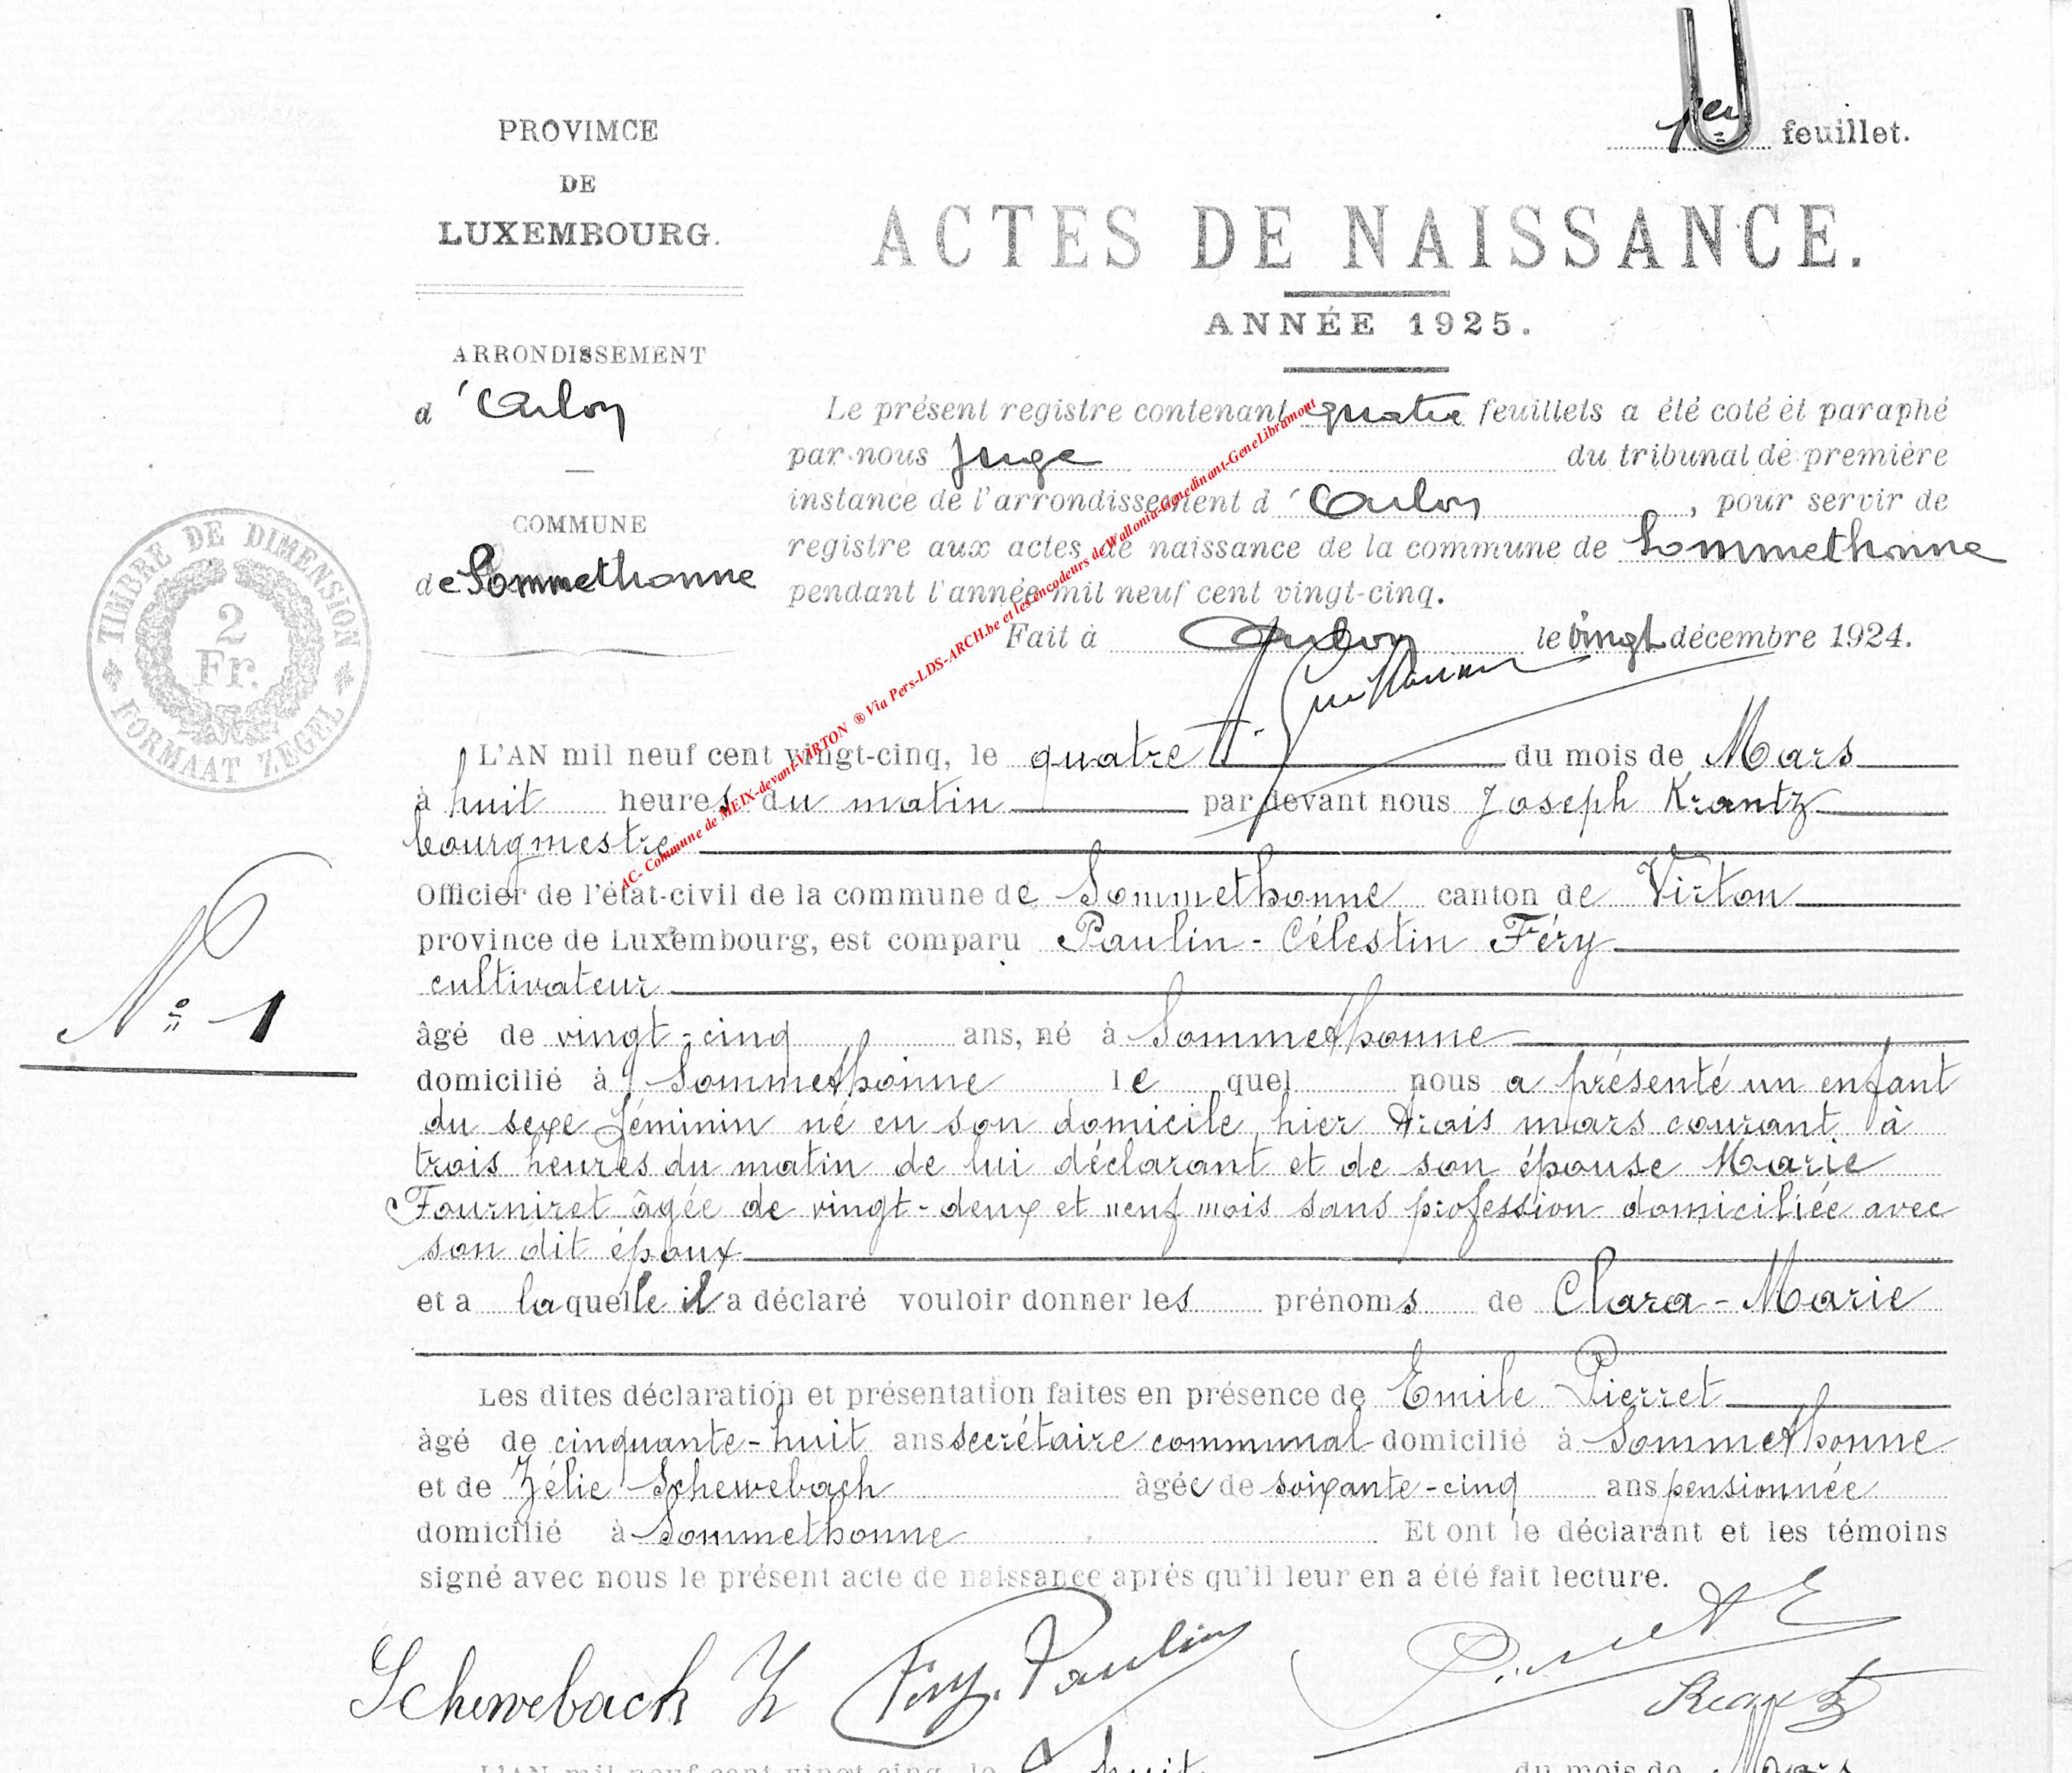 1er feuillet.
PROVIMCE
DE
LUXEMBOURG.
ACTES DE NAISSANCE.
ANNÉE 1925.
ARRONDISSEMENT
d'Arlon
COMMUNE
de Sommethonne
TIMBRE DE DIMENSION
2
Fr.
FORMAAT ZEGEL
Le présent registre contenant quatre feuillets a été coté et paraphé
par nous Juge du tribunal de première
instance de l'arrondissement d'Arlon, pour servir de
registre aux actes de naissance de la commune de Sommethonne
pendant l'année mil neuf cent vingt-cinq.
Fait à Arlon le vingt décembre 1924.
AC- Commune de MEIX-devant-VIRTON ® Via Pers-LDS-ARCH.be et les encodeurs de Wallonia-Genedinant-GeneLibramont
L'AN mil neuf cent vingt-cinq, le quatre du mois de Mars
à huit heures du matin par devant nous Joseph Krantz
bourgmestre
Officier de l'état-civil de la commune de Sommethonne canton de Virton
province de Luxembourg, est comparu Paulin-Célestin Féry
cultivateur
N° 1
âgé de vingt-cinq ans, né à Sommethonne
domicilié à Sommethonne le quel nous a présenté un enfant
du sexe féminin né en son domicile hier trois mars courant à
trois heures du matin de lui déclarant et de son épouse Marie
Fourniret âgée de vingt-deux et neuf mois sans profession domiciliée avec
son dit époux
et a laquelle il a déclaré vouloir donner les prénoms de Clara-Marie
Les dites déclaration et présentation faites en présence de Emile Pierret
âgé de cinquante-huit ans secrétaire communal domicilié à Sommethonne
et de Zélie Schewebach âgée de soixante-cinq ans pensionnée
domicilié à Sommethonne Et ont le déclarant et les témoins
signé avec nous le présent acte de naissance après qu'il leur en a été fait lecture.
Schewebach Z Féry. Paulin Pierret E
Krantz
L'AN mil neuf cent vingt-cinq, le huit du mois de Mars